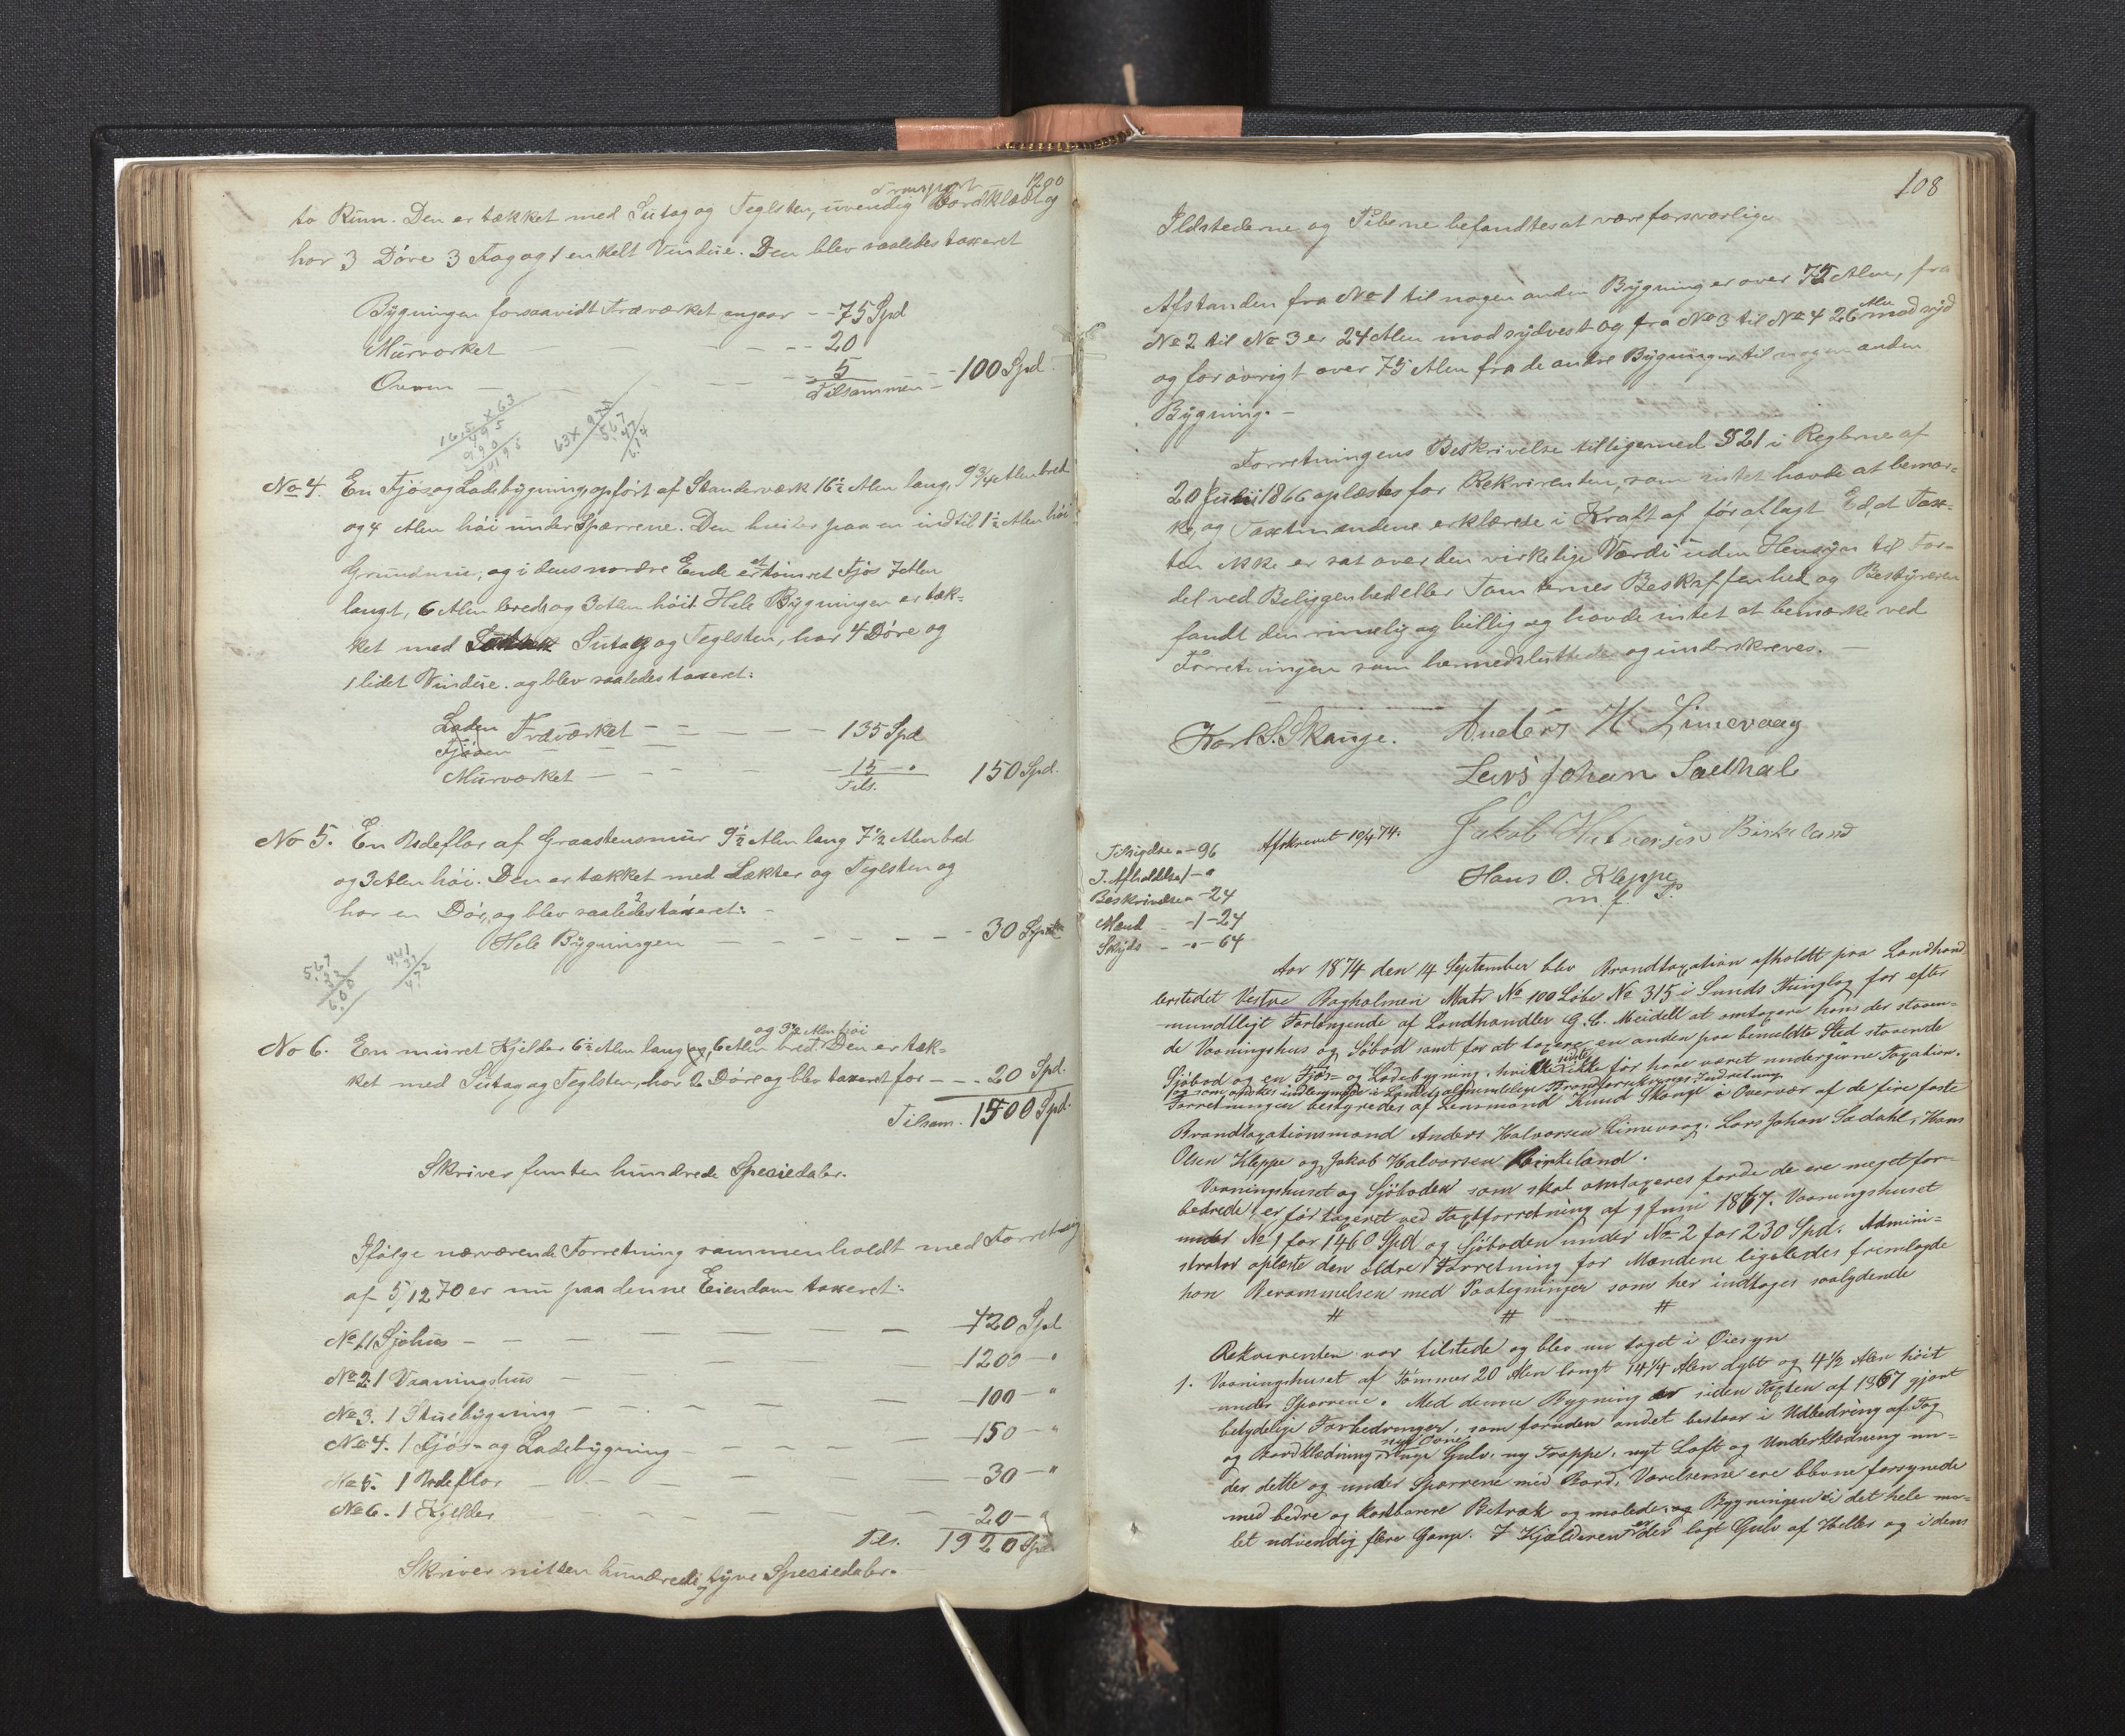 Transport 1200
to Rum. Den er tækket med Sutag og Teglsten, uvendig Bordklædt og
har 3 Døre 3 Fag og 1 enkelt Vindue. Den blev saaledes taxeret
Bygningen forsaavidt Træværket angaar - - 75 Spd
Murværket - - - - - 20
Ovnen - - - - 5
Tilsammen - - 100 Spd.
16,5 x 63
495
990
63 x 9,75
567
47
614
No 4. En Fjøs og Ladebygning, opført af Standerværk 16½ Alen lang, 9¾ Alen bred
og 4 Alen høi under Spærrene. Den hviler paa en indtil 1½ Alen høi
Grundmur, og i dens nordre Ende er et tømret Fjøs 7 Alen
langt, 6 Alen bredt og 3 Alen høit. Hele Bygningen er tæk-
ket med Sutag og Teglsten, har 4 Døre og
1 lidet Vindue. og blev saaledes taxeret:
Laden
Fjøsen Træværket - - - - 135 Spd
Murværket - - - - 15 - "
Tils. 150 Spd.
No 5. En Udeflor af Graastensmur 9½ Alen lang 7½ Alen bred
og 3 Alen høi. Den er tækket med Lækter og Teglsten og
har en Dør, og blev saaledes taxeret: -
Hele Bygningen - - - - - - 30 Spd
567
33
600
441
31
472
og 3½ Alen høi
No 6. En muret Kjelder 6½ Alen lang, 6 Alen bred. Den er tæk-
ket med Sutag og Teglsten, har 2 Døre og blev taxeret for - - - 20 Spd.
Tilsam. 1500 Spd.
Skriver femten hundrede Speciedaler.
Ifølge nærværende Forretning sammenholdt med Forretning
af 5/12 70 er nu paa denne Eiendom taxeret:
No 1. 1 Sjøhus - - - - - - 420 Spd
No 2. 1 Vaaningshus - - - 1200 - "
No 3. 1 Stuebygning - - - - 100 - "
No 4. 1 Fjøs- og Ladebygning - - - - - 150 - "
No 5. 1 Udeflor - - - - 30 - "
No 6. 1 Kjelder - - - - - 20 - "
Tils. 1920 Spd
Skriver nitten hundrede og tyve Speciedaler.
108
Ildstederne og Piberne befandtes at være forsvarlige
Afstanden fra No 1 til nogen anden Bygning er over 75 Alen, fra
No 2 til No 3 er 24 Alen mod sydvest og fra No 3 til No 4 26 Alen mod syd
og forøvrigt over 75 Alen fra de andre Bygninger til nogen anden
Bygning. -
Forretningens Beskrivelse tilligemed § 21 i Reglerne af
20 Juli 1866 oplæstes for Rekvirenten, som intet havde at bemær-
ke, og Taxtmændene erklærede i Kraft af før aflagt Ed, at Tax-
ten ikke er sat over den virkelige Værdi uden Hensyn til For-
del ved Beliggenhed eller Tomternes Beskaffenhed og Bestyreren
fandt den rimelig og billig og havde intet at bemærke ved
Forretningen som hermed sluttedes og underskreves. -
K S. Skange. Anders H. Limevaag
Lars Johan Saedhal
Jakob Halvorsen Birkeland
Hans O. Kleppe
m. f. P.
Afskrevet 10/4 74.
Tilsigelse " - 96
I. Afholdelse 1 - "
Beskrivelse " - 24
Mænd - 1 - 24
Skyds - " - 64
Aar 1874 den 14 September blev Brandtaxation afholdt paa Landhand-
lerstedet Vestre Bagholmen Matr No 100 Løbe No 315 i Sunds Thinglag for efter
mundtligt Forlangende af Landhandler G. C. Meidell at omtaxere hans der staaen-
de Vaaningshus og Søbod samt for at taxere en anden paa bemeldte Sted staaende
Sjøbod og en Fjøs- og Ladebygning, hvilke sidste ikke før have været undergivne Taxation.
og som ønskes indlemmede i Landets almindelige Brandforsikrings Indretning
Forretningen bestyredes af Lensmand Knud Skange i Overvær af de fire faste
Brandtaxationsmænd Anders Halvorsen Limevaag, Lars Johan Sædahl, Hans
Olsen Kleppe og Jakob Halvorsen Birkeland.
Vaaningshuset og Sjøboden som skal omtaxeres fordi de ere meget for-
bedrede, er før taxeret ved Taxtforretning af 9 Juni 1867. Vaaningshuset
under No 1 for 1460 Spd og Sjøboden under No 2 for 230 Spd. Admini-
strator oplæste den ældre Forretning for Mændene ligeledes fremlagde
han Berammelsen med Paategninger som her indtages saalydende
# # #
Rekvirenten var tilstede og blev nu taget i Øiesyn
1. Vaaningshuset af Tømmer 20 Alen langt 14¼ Alen dybt og 4½ Alen høit
under Sparrene. Med denne Bygning er siden Taxten af 1867 gjort
betydelige Forbedringer, som foruden andet bestaar i Udbedring af Tag
og Bordklædning, nye Ovne, nye Gulv, ny Trappe, nyt Loft og Underklædning un-
der dette og under Sparrene med Bord. Værelserne ere blevne forsynede
med bedre og kostbarere Betræk og malede, og Bygningen i det hele ma-
let udvendig flere Gange. I Kjælderen er der lagt Gulv af Heller og i dens